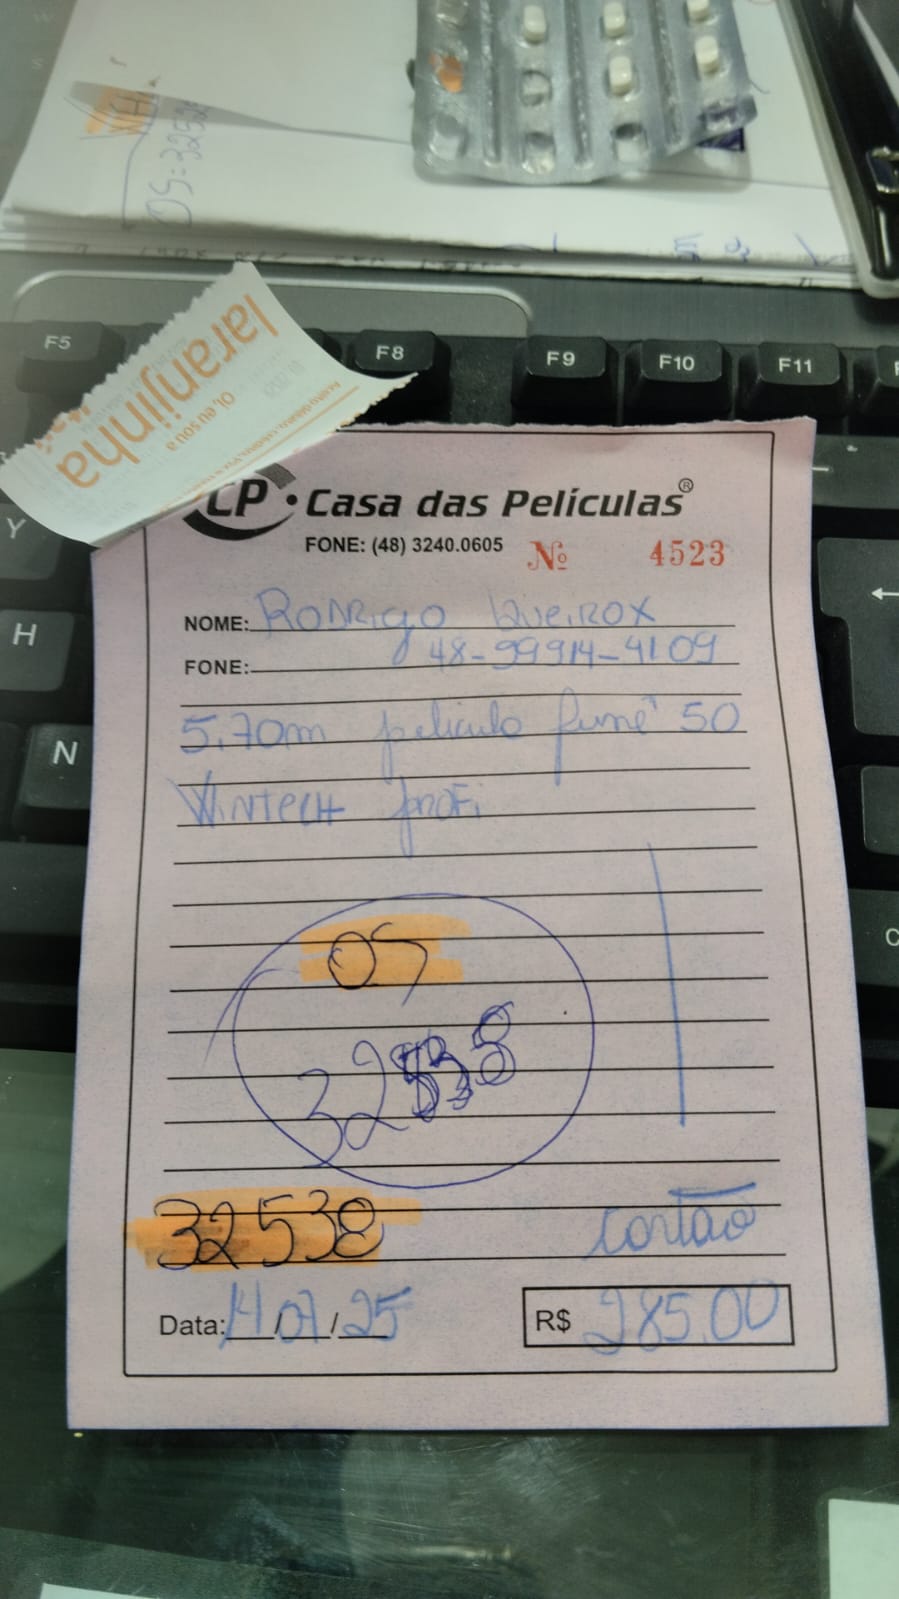 OS=3252
F5
F8
F9
F10
F11
Y
H
N
laranjinha
Oi, eu sou a
CP Casa das Películas®
FONE: (48) 3240.0605 Nº 4523
NOME: Rodrigo Queirox
FONE: 48-99914-4109
5,70m pelicula fumê 50
Wintech profi
OS
32538
32538 cartão
Data: 14/07/25 R$ 285,00